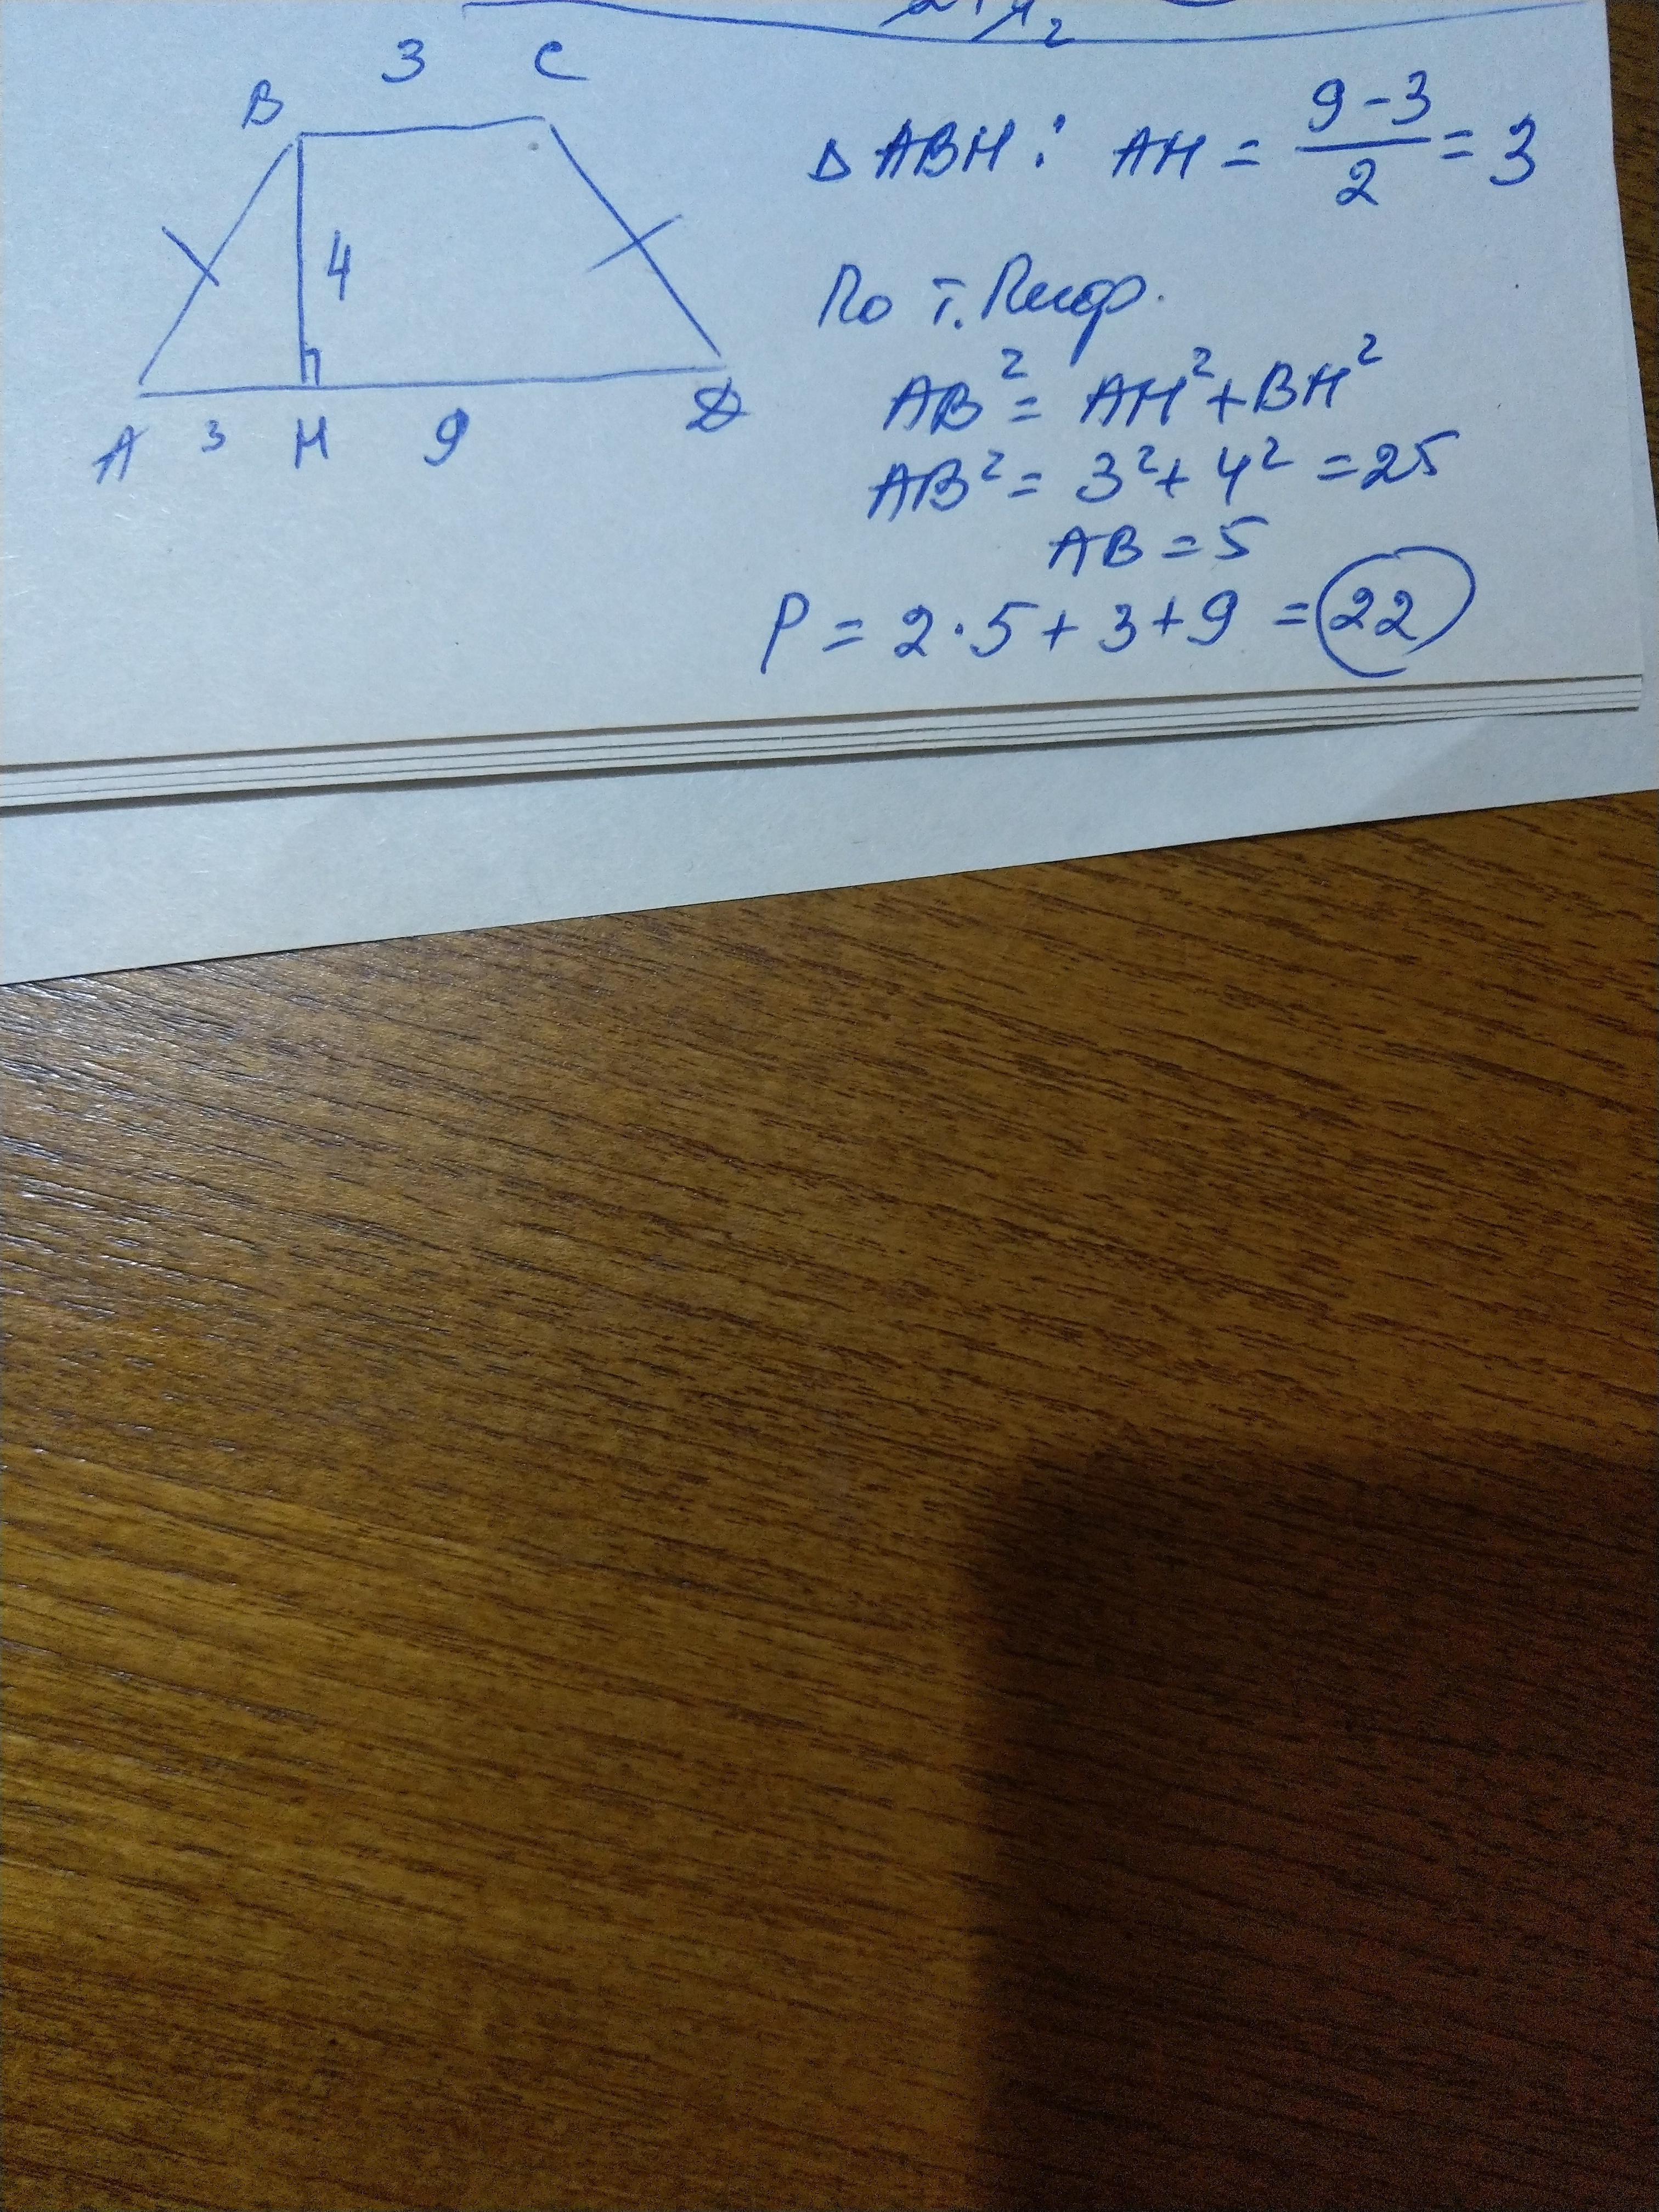 3 C
B
4
A 3 H 9 D
Δ ABH : AH = (9-3)/2 = 3
По т. Пиф.
AB² = AH² + BH²
AB² = 3² + 4² = 25
AB = 5
P = 2·5 + 3 + 9 = 22